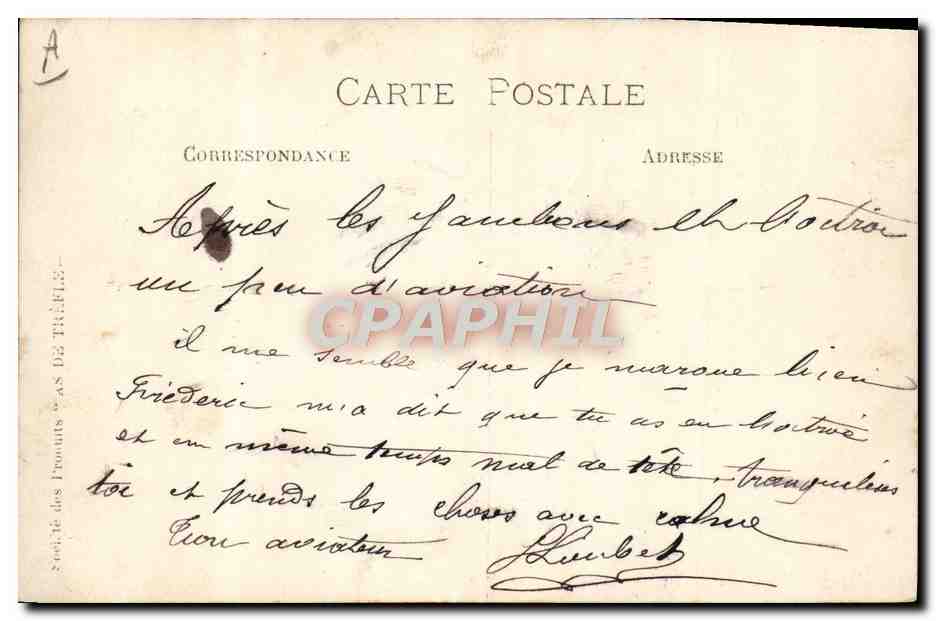 A
CARTE POSTALE
CORRESPONDANCE
ADRESSE
Après les Jambons et
un peu d'aviation
il me semble que je marque bien
Fréderic m'a dit que tu as eu
et en même temps mal de tête, tranquilises
toi et prends les choses avec calme
Ton aviateur
Loubet
Société des Produits "AS DE TRÈFLE"
CPAPHIL